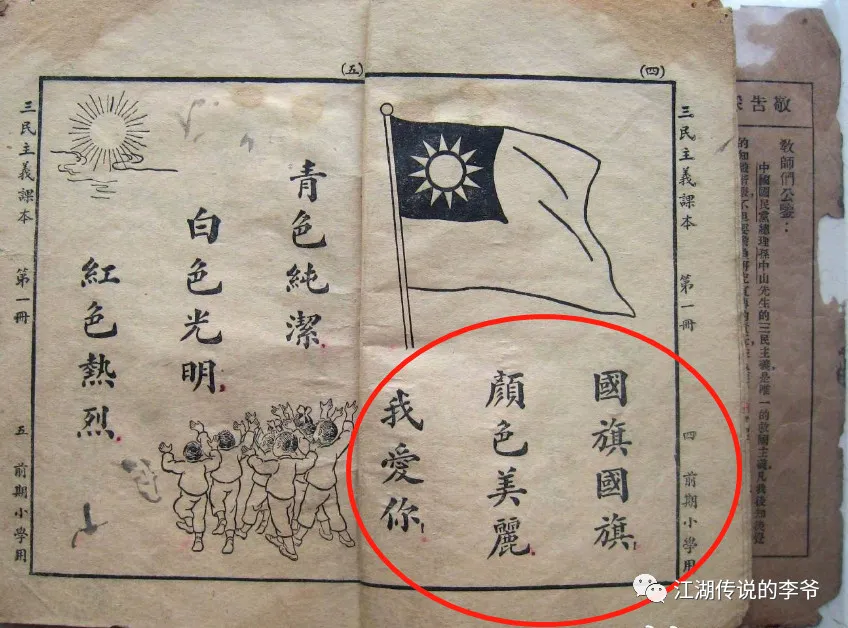 敬告
教師們公鑒：
中國國民黨總理孫中山先生的三民主義，是唯一的救國主義，凡我後知後覺
三民主義課本 第一冊 四 前期小學用
(四)
國旗國旗，
顏色美麗，
我愛你！
(五)
青色純潔，
白色光明，
紅色熱烈。
三民主義課本 第一冊 五 前期小學用
江湖传说的李爷